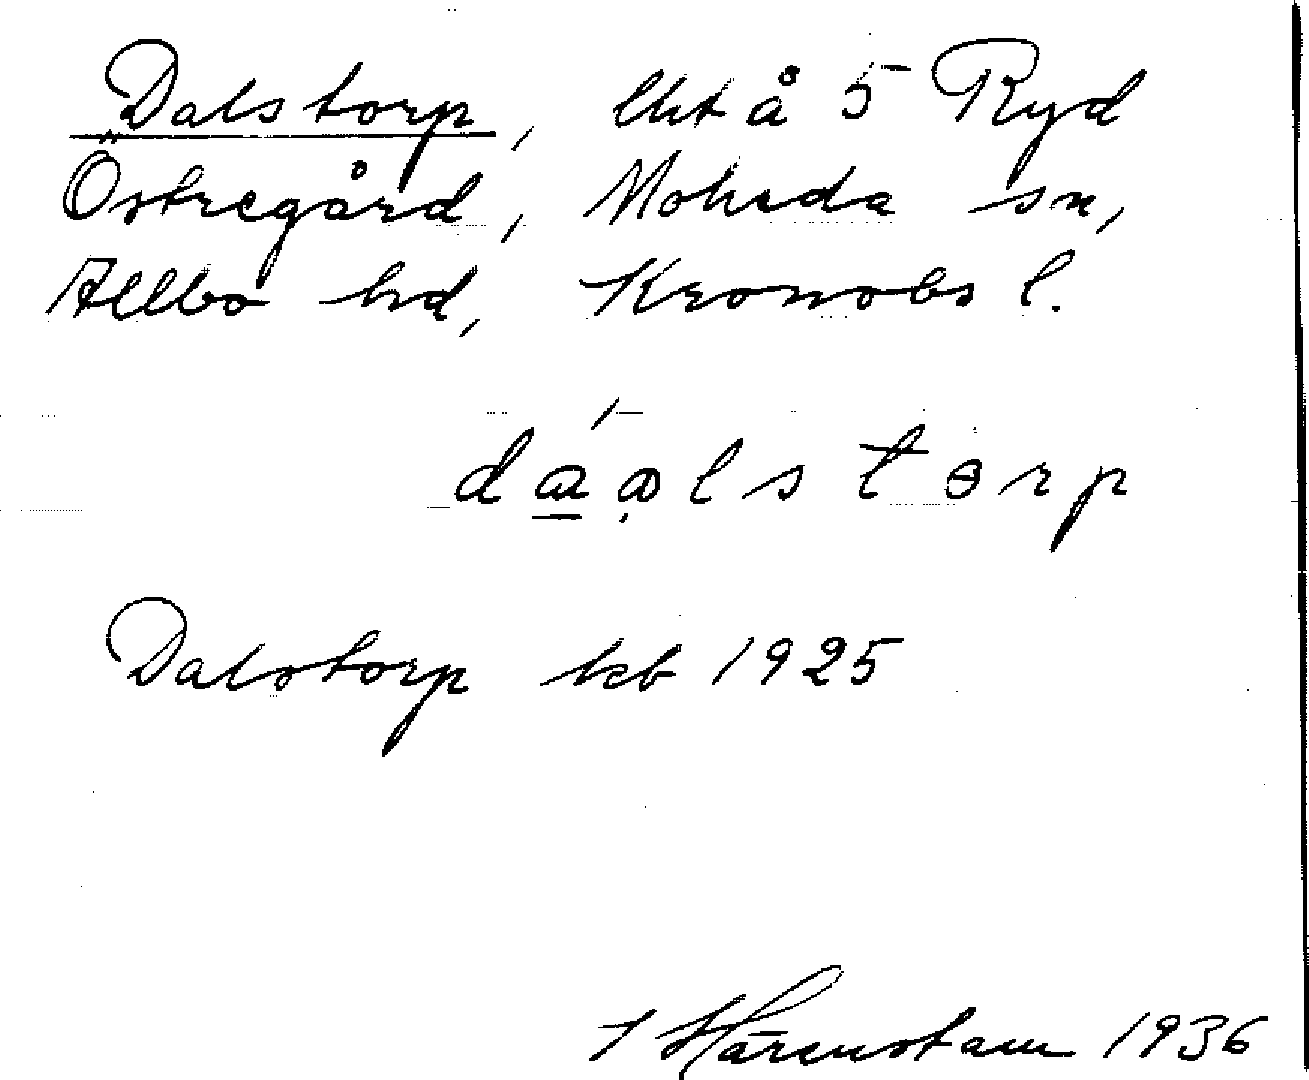 Dalstorp, lht å 5 Ryd
Östregård, Moheda sn,
Allbo hd, Kronobs l.
dáalstɵrp
Dalstorp kb 1925
Härenstam 1936